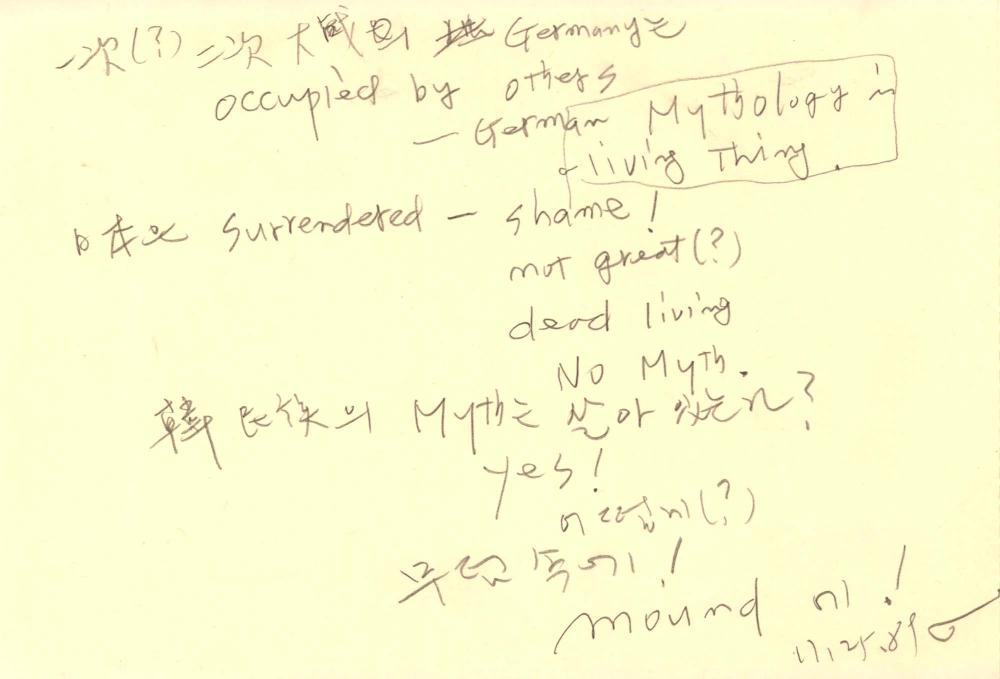 一次(?) 二次 大戰 Germany는
occupied by others
— German Mythology is
a living Thing.
日本은 surrendered — shame!
not great(?)
dead living
No Myth.
韓民族의 Myth는 살아 있는가?
yes!
어떻게(?)
무덤 속에!
mound 에!
11.25.89